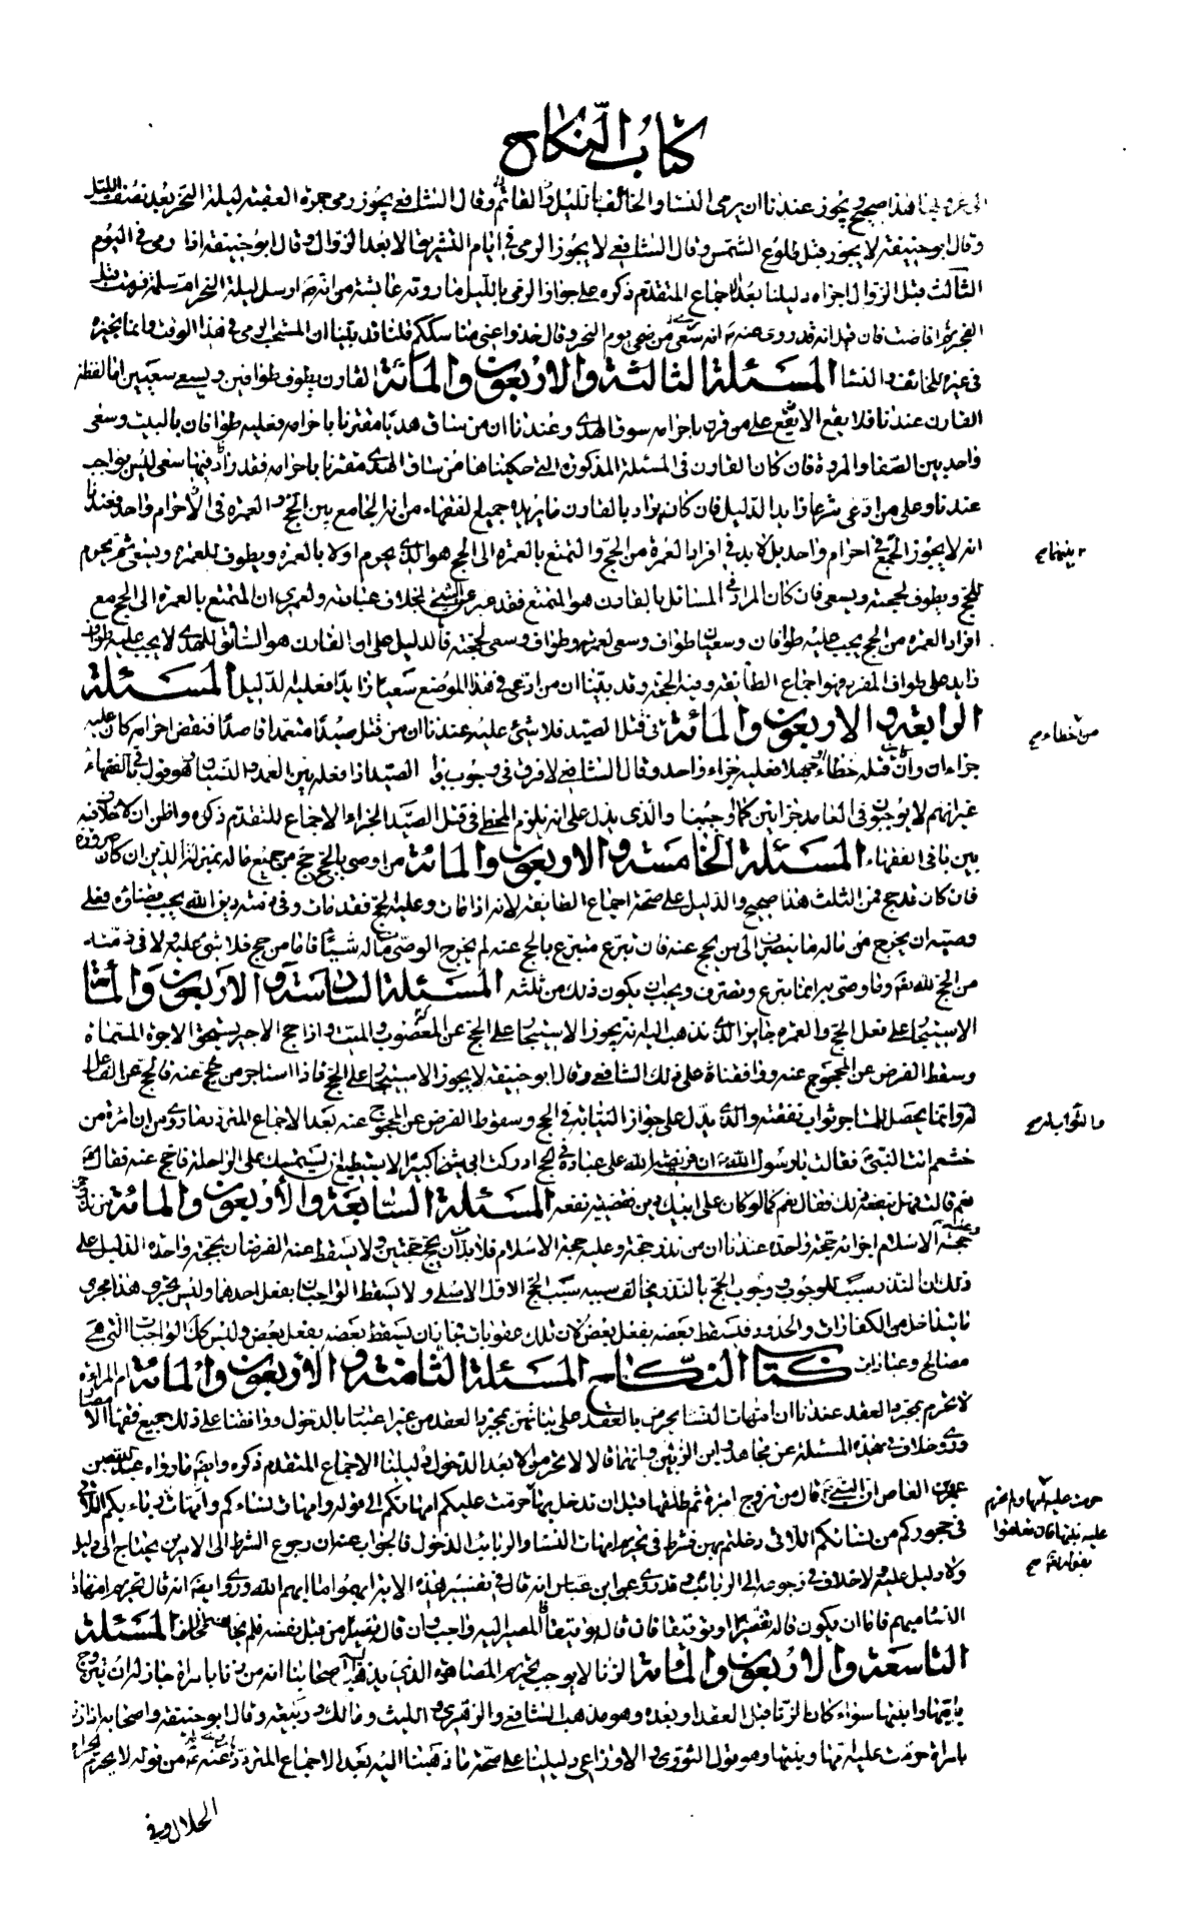 كتاب النكاح
فهذا صحيح ويجوز عندنا ان يرمى النساء والخائف بالليل وقال الشافعى يجوز رمى جمرة العقبة ليلة النحر بعد نصف الليل
وقال ابو حنيفة لا يجوز قبل طلوع الشمس وقال الشافعى لا يجوز الرمى فى ايام التشريق الا بعد الزوال وقال ابو حنيفة اذا رمى فى اليوم
الثالث قبل الزوال اجزاه دليلنا بعد الاجماع المتقدم ذكره على جواز الرمى بالليل ما روته عائشة من انه ارسل ليلة النحر ام سلمة فرمت قبل
الفجر ثم افاضت فان قيل انه قد روى عنه انه رمى ضحى يوم النحر وقال خذوا عنى مناسككم قلنا قد بينا ان المستحب الرمى فى هذا الوقت وانما يجيزه
فى غيره للخائف والنساء المسئلة الثالثة والاربعون والمائة القارن يطوف طوافين ويسعى سعيين اما لفظة
القارن عندنا فلا يقع الا على من قرن باحرامه سوق الهدى وعندنا ان من ساق هديا مقترنا باحرامه فعليه طوافان بالبيت وسعى
واحد بين الصفا والمروة فان كان القارن فى المسئلة المذكورة التى حكيناها من ساق الهدى مقترنا باحرامه فقد زاد فيها سعى ليس بواجب
عندنا وعلى من ادعى شرعا زايدا الدليل فان كان يراد بالقارن ما يريده جميع الفقهاء من انه الجامع بين الحج والعمرة فى احرام واحد فعندنا
انه لا يجوز الجمع فى احرام واحد بل لابد فى افراد العمرة من الحج والتمتع بالعمرة الى الحج هو الذى يحرم اولا بالعمرة ويطوف للعمرة ويسعى ثم يحرم
بينهما صح
للحج ويطوف لحجته ويسعى فان كان المراد فى المسائل بالقارن هو المتمتع فقد عبر عن الشىء بخلاف عبارته ولعمرى ان المتمتع بالعمرة الى الحج مع
افراد العمرة من الحج يجب عليه طوافان وسعيان طواف وسعى لعمرته وطواف وسعى لحجته فالدليل على ان القارن هو السائق للهدى لا يجب عليه طواف
زايد على طواف المفرد فهو اجماع الطائفة وفيه الحجة وقد بينا ان من ادعى فى هذا الموضع سعيا زايدا فعليه الدليل المسئلة
الرابعة والاربعون والمائة فى قتل الصيد فلا شىء عليه عندنا ان من قتل صيدا متعمدا قاصدا فنقض احرامه كان عليه
من خطاء صح
جزاءان وان قتله خطاء او جهلا فعليه جزاء واحد وقال الشافعى لا فرق فى وجوب الصيد اذا فعله بين العمد والنسيان وهو قول باقى الفقهاء
غير انهم لا يوجبون فى العامد جزائين كما اوجبنا والذى يدل على انه يلزم المخطى فى قتل الصيد الجزاء الاجماع المتقدم ذكره واظن ان لا خلاف فيه
بين باقى الفقهاء المسئلة الخامسة والاربعون والمائة من اوصى بالحج حج من جميع ماله بمنزلة الدين ان كان صرورة
فان كان قد حج فمن الثلث هذا صحيح والدليل على صحته اجماع الطائفة لانه اذا مات وعليه الحج فقد مات وفى ذمته دين الله يجب قضاؤه فعلى
وصيه ان يخرج من ماله ما ينصرف الى من يحج عنه فان تبرع متبرع بالحج عنه لم يخرج الوصى من ماله شيئا فاما من حج فلا شىء عليه ولا فى ذمته
من الحج لله تعالى وما وصى به انما يتبرع ويتصرف ويجب ان يكون ذلك من ثلثه المسئلة السادسة والاربعون والمائة
الاستيجار على فعل الحج والعمرة جايز الذى نذهب اليه انه يجوز الاستيجار على الحج عن المعضوب والميت واذا حج الاجير يستحق الاجرة المسماة
وسقط الفرض عن المحجوج عنه ووافقنا على ذلك الشافعى وقال ابو حنيفة لا يجوز الاستيجار على الحج فاذا استاجر من يحج عنه فالحج عن الفاعل
له وانما يحصل للمستاجر ثواب نفقته والذى يدل على جواز النيابة فى الحج وسقوط الفرض عن المحجوج عنه بعد الاجماع المتردد ما روى من ان امرأة من
خثعم اتت النبى فقالت يا رسول الله ان فريضة الله على عباده فى الحج ادركت ابى شيخا كبيرا لا يستطيع ان يستمسك على الراحلة فاحج عنه فقال
نعم قالت فهل ينفعه ذلك فقال نعم كما لو كان على ابيك دين فقضيته نفعه المسئلة السابعة والاربعون والمائة من نذر
حجة الاسلام اجزائه حجة واحدة عندنا ان من نذر حجة وعليه حجة الاسلام فلابد ان يحج حجتين ولا يسقط عنه الفرضان بحجة واحدة الدليل على
ذلك ان النذر سبب للوجوب ووجوب الحج بالنذر يخالف سببه سبب الحج الاول الاصلى ولا يسقط الواجبان بفعل احدهما وليس يجرى هذا مجرى
ما يتداخل من الكفارات والحدود فسقط بعضه بفعل بعض لان تلك عقوبات فجاز ان يسقط بعضه بفعل بعض وليس كك الواجبات التى هى
مصالح وعبادات كتاب النكاح المسئلة الثامنة والاربعون والمائة ام المراة
لا تحرم بمجرد العقد عندنا ان امهات النساء يحرمن بالعقد على بناتهن بمجرد العقد من غير اعتبار بالدخول ووافقنا على ذلك جميع فقهاء الامصار
وروى خلاف فى هذه المسئلة عن مجاهد وابن الزبير فانهما قالا لا تحرمن الا بعد الدخول دليلنا الاجماع المتقدم ذكره وايضا ما رواه عبد الله بن
عمرو بن العاص ان النبى قال من تزوج امرأة ثم طلقها قبل ان يدخل بها حرمت عليكم امهاتكم الى قوله وامهات نسائكم وربائبكم اللاتى
فى حجوركم من نسائكم اللاتى دخلتم بهن فشرط فى تحريم امهات النساء والربائب الدخول فالجواب عنه ان رجوع الشرط الى الامرين يحتاج الى دليل
ولا دليل عليه ولا خلاف فى رجوعه الى الربائب وقد روى عن ابن عباس انه قال فى تفسير هذه الاية ابهموا ما ابهم الله وروى ايضا انه قال تحريم امهات
النساء مبهم فاما ان يكون قاله تفسيرا او توقيفا فان قاله توقيفا فالمصير اليه واجب وان قاله تفسيرا من قبل نفسه فلم يجز المسئلة
التاسعة والاربعون والمائة الزنا لا يوجب تحريم المصاهرة الذى يذهب اليه اصحابنا انه من زنا بامراة جاز له ان يتزوج
بامها وابنتها سواء كان الزنا قبل العقد او بعده وهو مذهب الشافعى والزهرى والليث ومالك وربيعة وقال ابو حنيفة واصحابه اذا زنى
بامراة حرمت عليه امها وبنتها وهو قول الثورى والاوزاعى دليلنا على صحة ما ذهبنا اليه بعد الاجماع المتردد من قوله لا يحرم الحرام
الحلال وفى